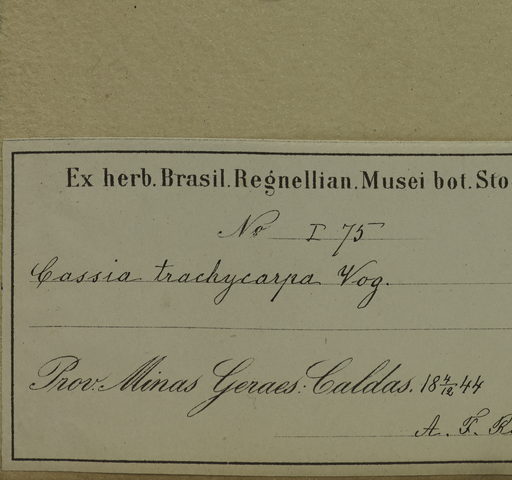 Ex herb. Brasil. Regnellian. Musei bot. Sto
No I 75
Cassia trachycarpa Vog.
Prov. Minas Geraes: Caldas. 18 4/12 44
A. F. R